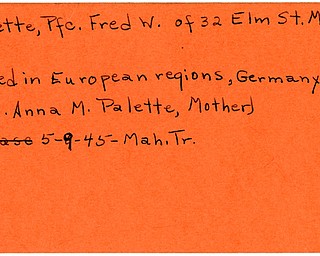 ette, Pfc. Fred W. of 32 Elm St. M
ed in European regions, Germany
. Anna M. Palette, Mother)
ase 5-9-45-Mah. Tr.